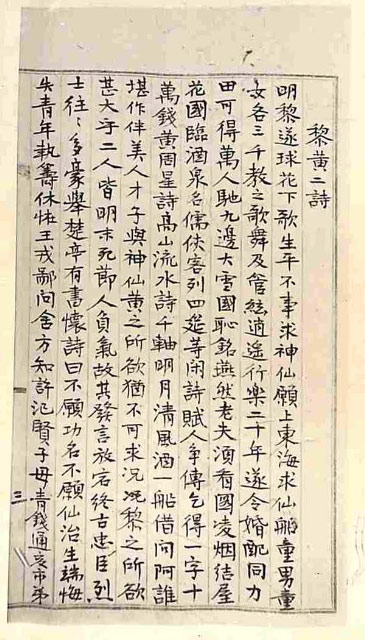 黎黃二詩
明黎遂球花下歌生平不事求神仙願上東海求仙船童男童
女各三千教之歌舞及管絃逍遙行樂二十年遂令婚配同力
田可得萬人馳九邊大雪國恥銘燕然老夫湏看國凌烟結屋
花國臨酒泉名儒俠客列四筵等閒詩賦人爭傳乞得一字十
萬錢黃周星詩高山流水詩千軸明月清風酒一船借問阿誰
堪作伴美人才子與神仙黃之所欲猶不可求況黎之所欲
甚大乎二人皆明末死節人負氣故其發言放宕終古忠臣烈
士往〻多豪舉楚亭有書懷詩曰不願功名不願仙治生端悔
失青年執籌休怪王戎鄙問舍方知許汜賢子母青錢通亥市弟
三